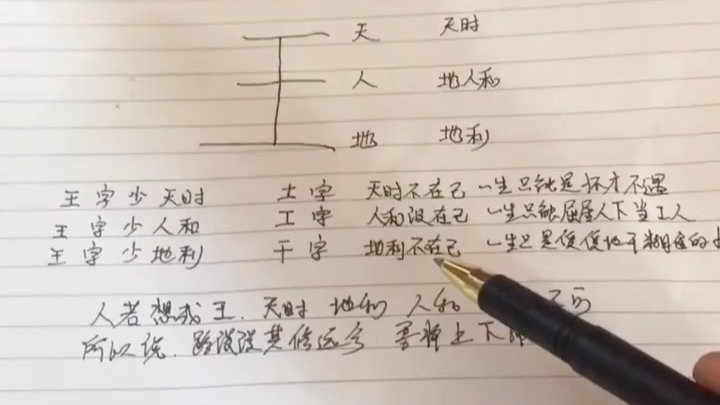 王
天 天时
人 地人和
地 地利
王字少天时 土字 天时不在己 一生只能是怀才不遇
王字少人和 工字 人和没在己 一生只能屈居人下当工人
王字少地利 干字 地利不在己 一生只是傻傻地干
人若想成王.天时 地利 人和 不可
所以说.路漫漫其修远兮 吾将上下